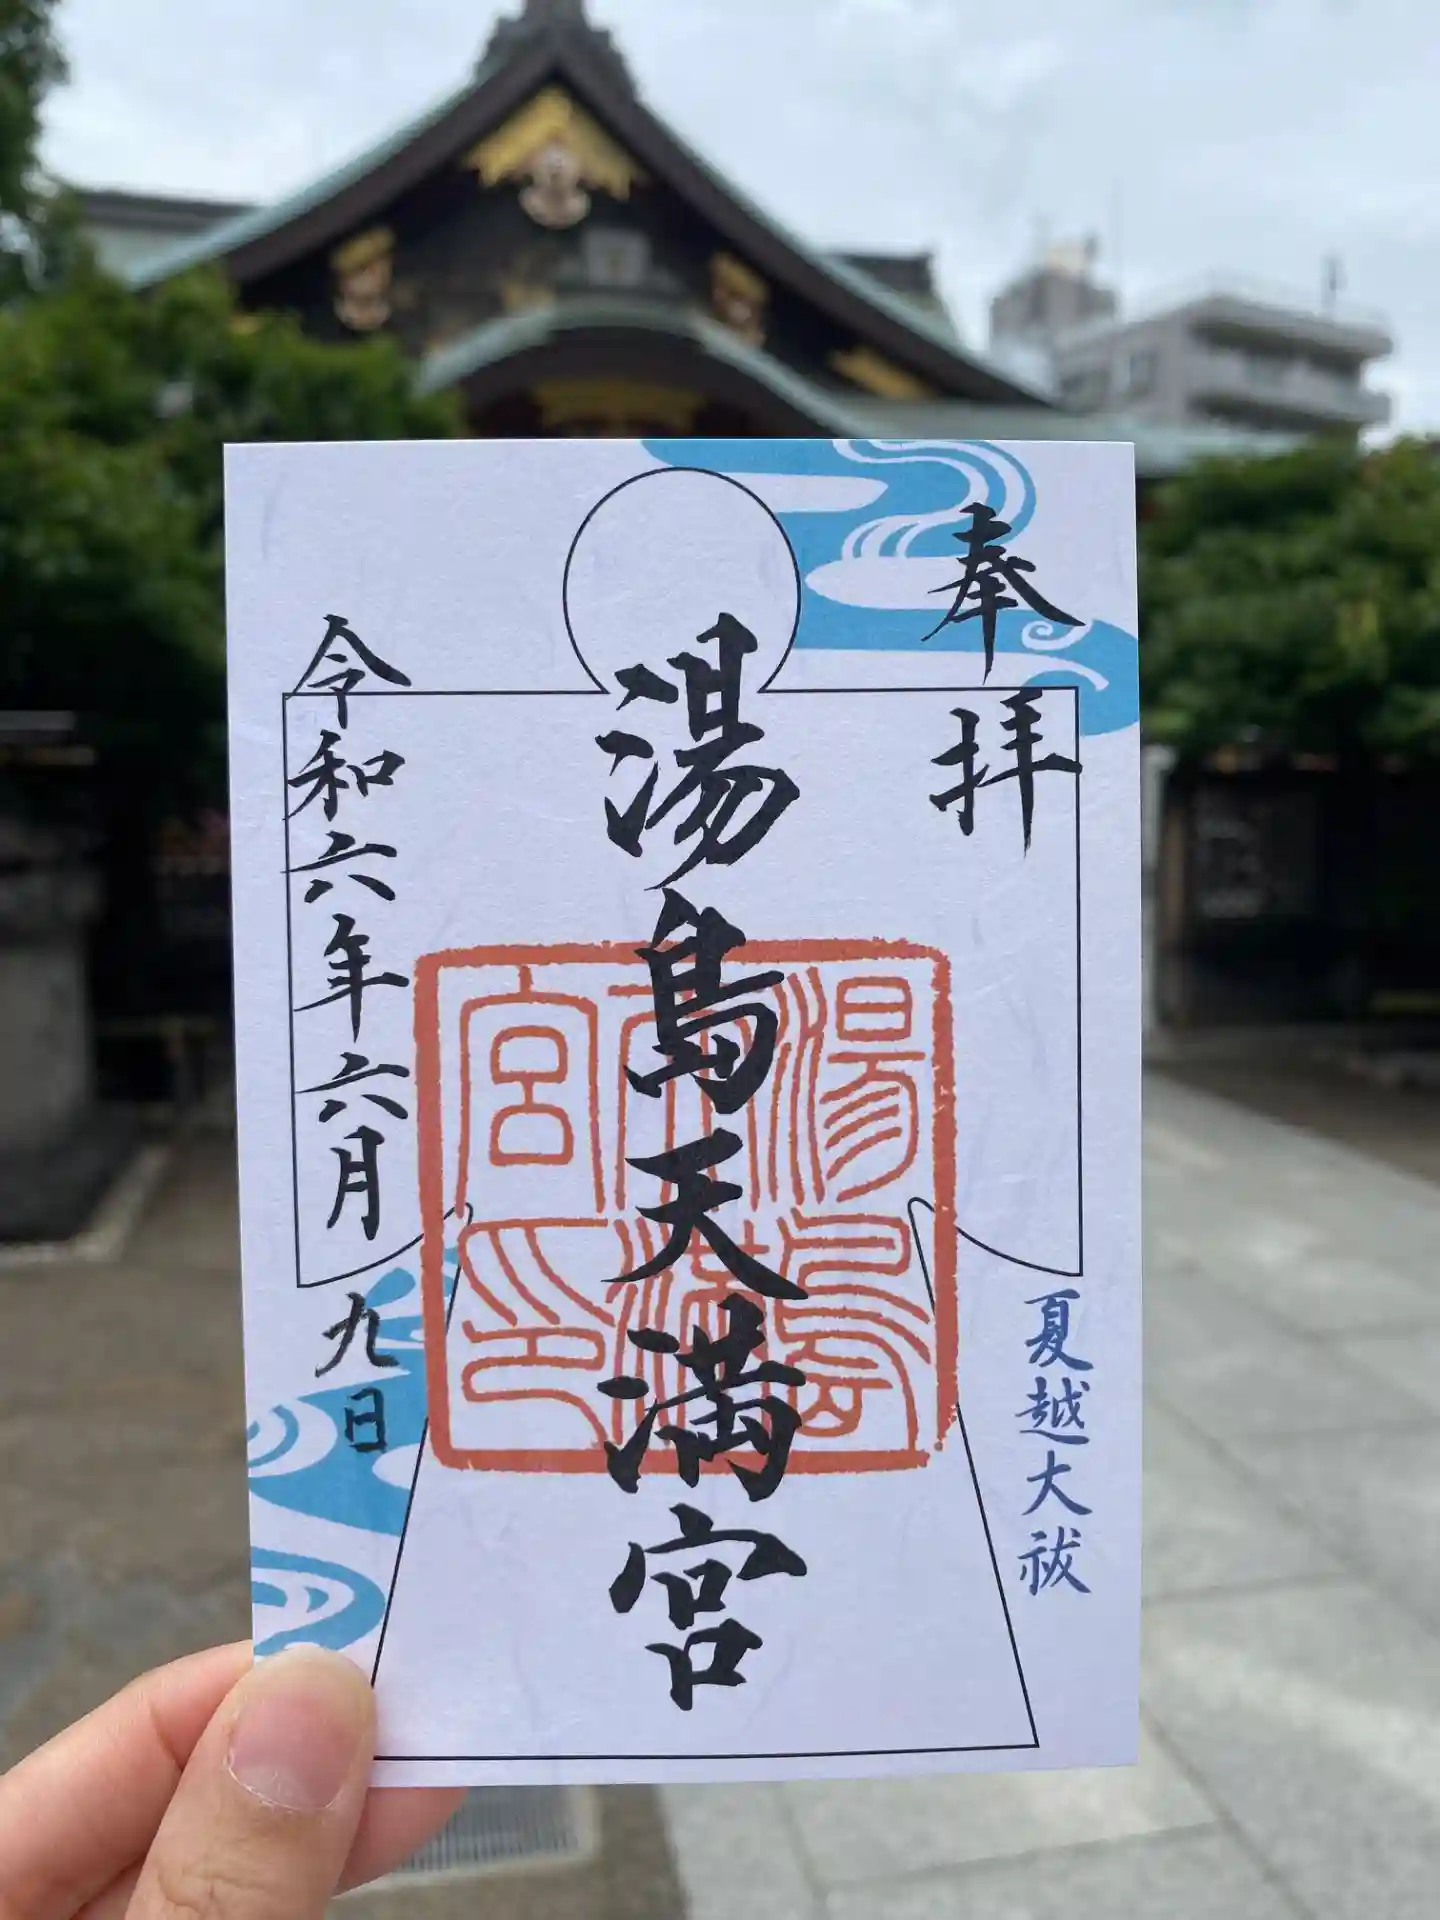 奉拝
夏越大祓
湯島天満宮
湯島天満宮印
令和六年六月九日